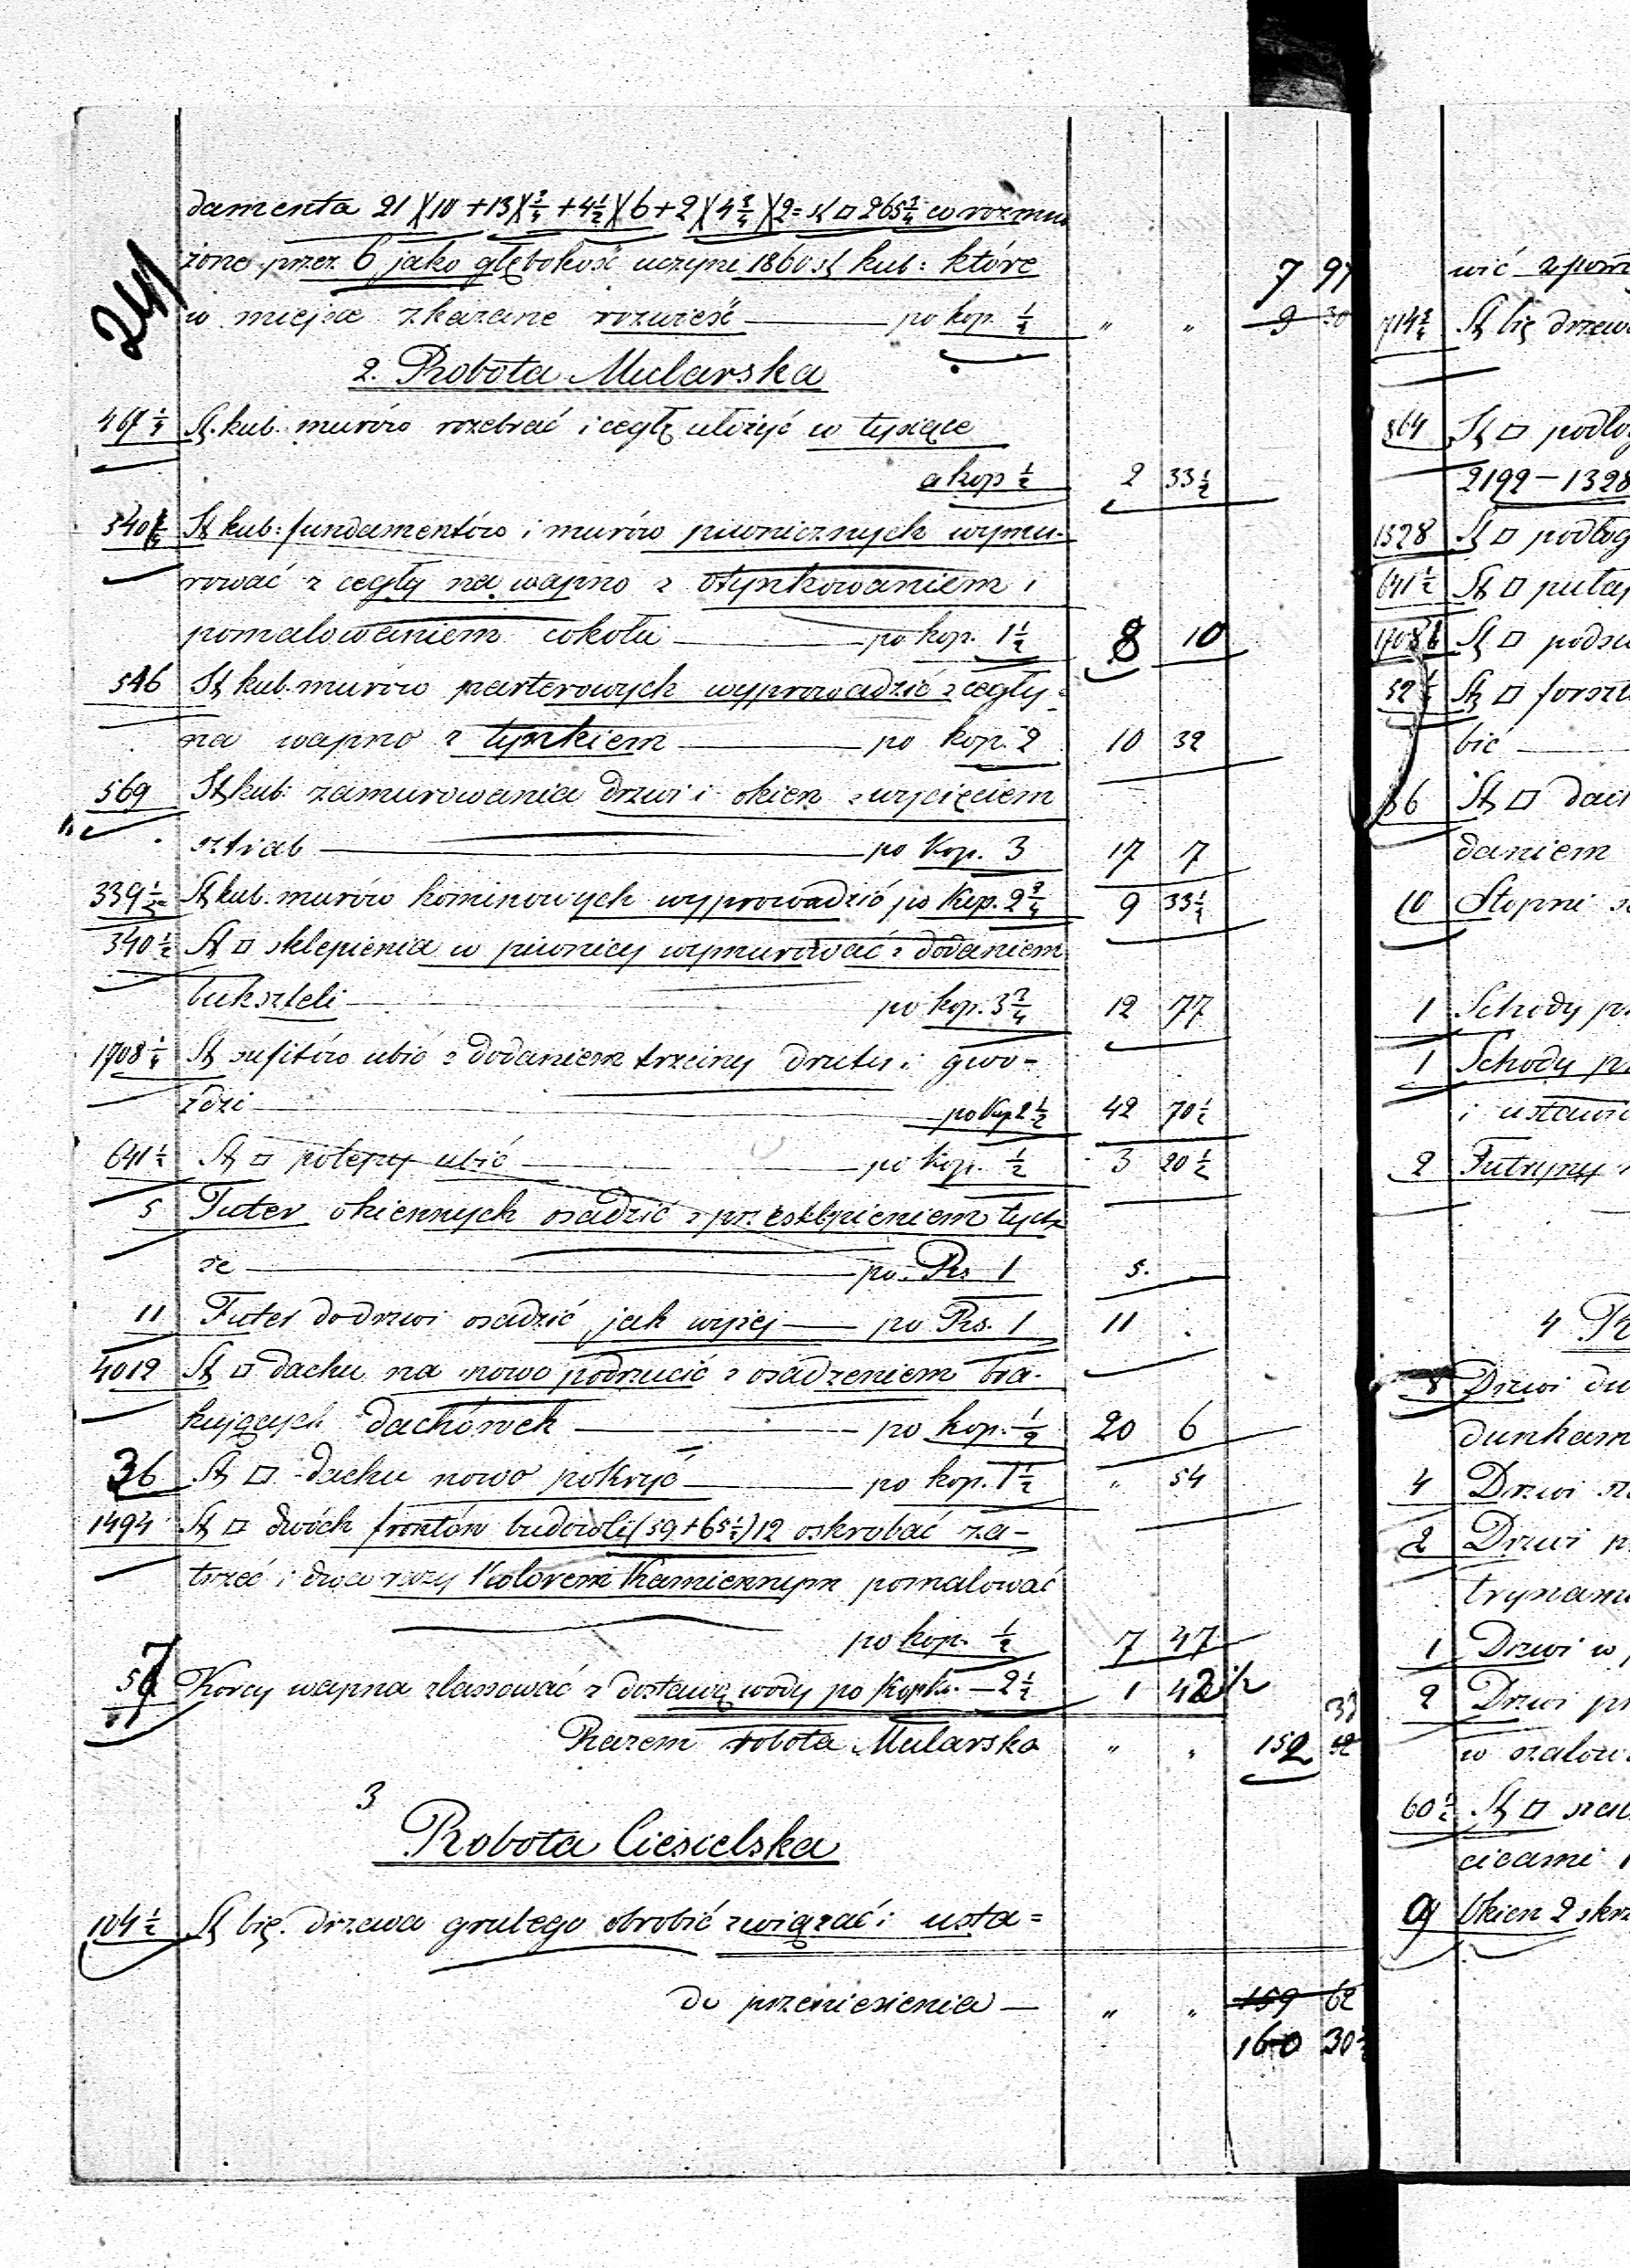 damenta 21)(10+13)(3/4+4 1/2)(6+2)(4 3/4)(2= sţ □ 265 3/4 co rozmno
żone przez 6 jako głębokość uczyni 1860 sţ kub: które 7 97
241
w miejsce zkazane rozwieść — po kop. 1/2 " " 9 30
2. Robota Mularska
467 1/4 Sţ. kub. murów rozebrać i cegłę ułożyć w tysiące
a kop 1/2 2 33 1/2
540 Sţ kub: fundamentów i murów piwnicznych wymu-
rować z cegły na wapno z otynkowaniem i
pomalowaniem cokołu — po kop. 1 1/2 8 10
516 Sţ kub. murów parterowych wyprowadzić z cegły
na wapno z tynkiem — po kop. 2 10 32
569 Sţ kub: zamurowania drzwi i okien z wycięciem
sztrab — po kop. 3 17 7
339 1/2 Sţ kub. murów kominowych wyprowadzić po kop. 2 3/4 9 33 1/2
340 1/2 Sţ □ sklepienia w piwnicy wymurować z dodaniem
bukszteli — po kop. 3 3/4 12 77
1708 1/4 Sţ sufitów ubić z dodaniem trzciny drutu i gwo-
ździ — po kop 2 1/2 42 70 1/2
641 1/2 Sţ □ polepy ubić — po kop. 1/2 3 20 1/2
5 Futer okiennych osadzić z przesklepieniem tych
że — po Rs 1 5.
11 Futer do drzwi osadzić jak wyżej — po Rs. 1 11 .
4012 Sţ □ dachu na nowo podrzucić z osadzeniem bra-
kujących dachówek — po kop. 1/2 20 6
36 Sţ □ dachu nowo pokryć — po kop. 1 1/2 " 54
1494 Sţ □ dwóch frontów budowli (59+65 1/2) 12 oskrobać za-
trzeć i dwa razy kolorem kamiennym pomalować
po kop. 1/2 7 47
57 Korcy wapna zlassować z dostawą wody po kop. — 2 1/2 1 42 1/2
33
Razem robota Mularska " " 152
3
Robota Ciesielska
104 1/2 Sţ bię. drzewa grubego obrobić związać i usta=
do przeniesienia — " " 159 62
160 30 1/2
wić
714 3/4 Sţ bię drzew
864 Sţ □ podłog
2192 — 1328
1328 Sţ □ podłog
641 1/2 Sţ □ pułap
1708 Sţ □ podsu
52 1/2 Sţ □ forszt
bić —
36 Sţ □ dach
daniem
10 Stopni
1 Schody p
1 Schody p
i ustawi
2 Futryny
4 R
8 Drzwi du
dunkam
4 Drzwi
2 Drzwi p
trynami
1 Drzwi w
2 Drzwi p
w szalow
60 1/2 Sţ □ szal
cicami
9 Okien 2 skrz